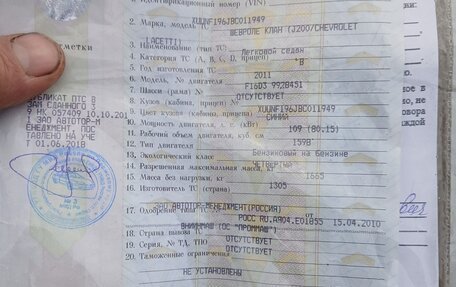 1. Идентификационный номер (VIN)
XUUNF196JBC011949
2. Марка, модель ТС
ШЕВРОЛЕ КЛАН (J200/CHEVROLET
LACETTI)
3. Наименование (тип ТС)
Легковой седан
4. Категория ТС (А, В, С, D, прицеп)
"В
5. Год изготовления ТС
2011
6. Модель, № двигателя
F16D3
7. Шасси (рама) №
ОТСУТСТВУЕТ
8. Кузов (кабина, прицеп) №
XUUNF196JBC011949
9. Цвет кузова (кабины, прицепа)
СИНИЙ
10. Мощность двигателя, л. с. (кВт)
109 (80.15)
11. Рабочий объем двигателя, куб. см
1598
12. Тип двигателя
Бензиновый на бензине
13. Экологический класс
ЧЕТВЕРТЫЙ
14. Разрешенная максимальная масса, кг
1665
15. Масса без нагрузки, кг
1305
16. Изготовитель ТС (страна)
ЗАО АВТОТОР-МЕНЕДЖМЕНТ(РОССИЯ)
17. Одобрение типа ТС №
от
РОСС RU.А904.Е01855 15.04.2010
(ОС "ПРОММАШ")
18. Страна вывоза ТС
ОТСУТСТВУЕТ
19. Серия, № ТД, ТПО
ОТСУТСТВУЕТ
20. Таможенные ограничения
НЕ УСТАНОВЛЕНЫ
метки
УБЛИКАТ ПТС В
ЗАН СДАННОГО
НК 057409 10.10.201
ЗАО АВТОТОР-М
ЕНЕДЖМЕНТ, ПОС
ТАВЛЕН НА УЧЕ
Т 01.06.2018